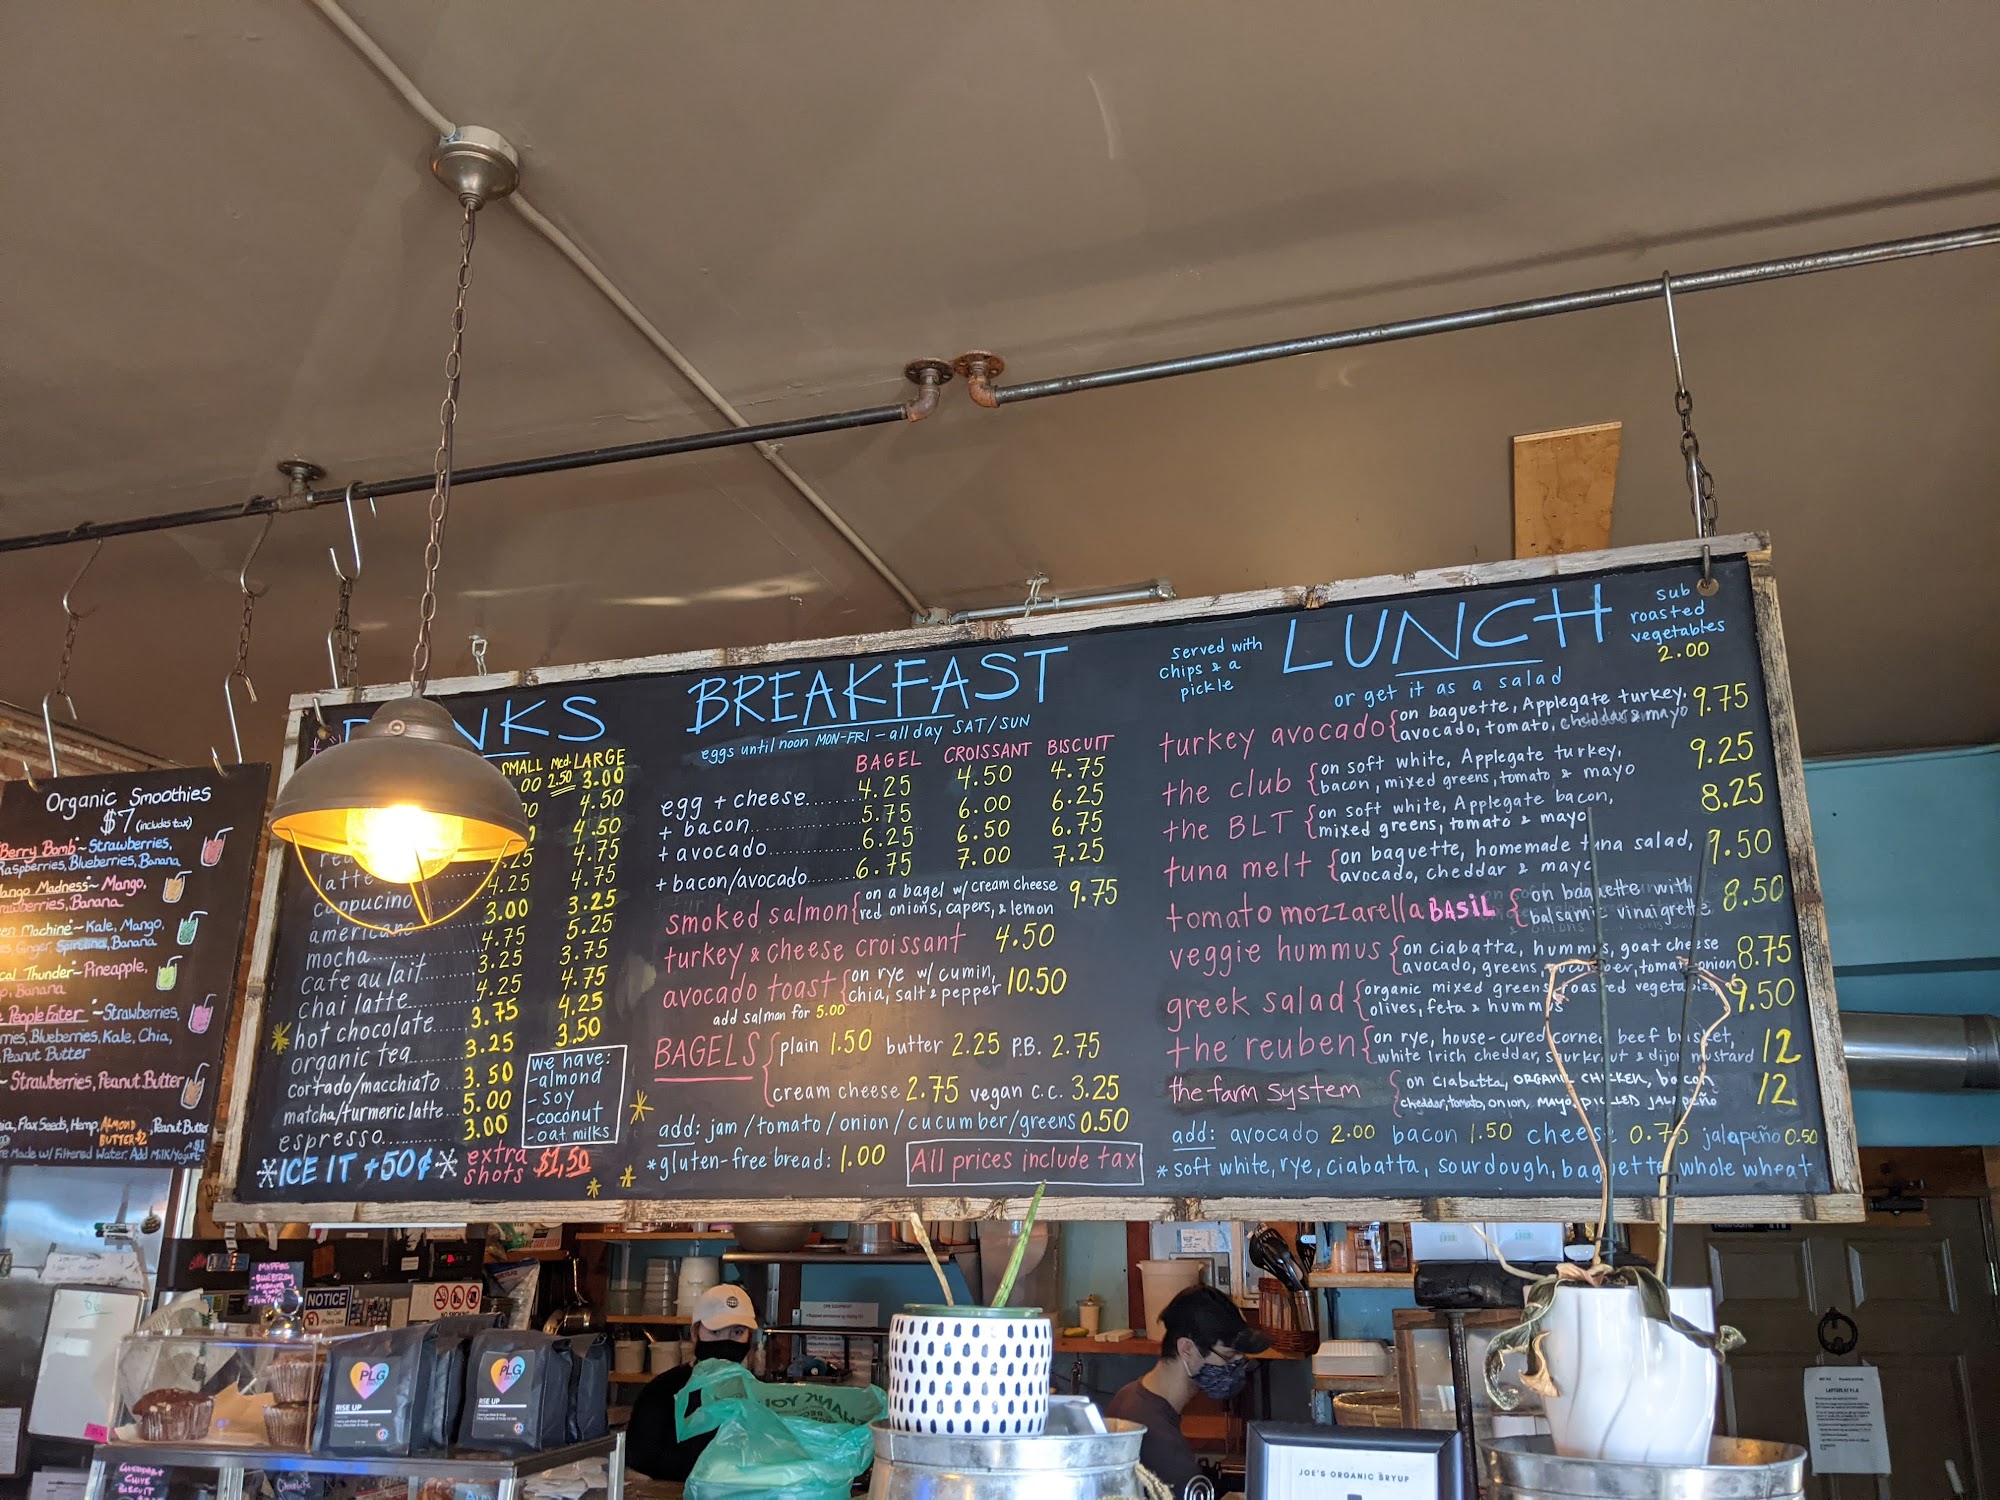 Organic Smoothies
$7 (includes tax)
Berry Bomb ~ Strawberries,
Raspberries, Blueberries, Banana
Mango,
Banana
Machine ~ Kale, Mango,
Ginger, Spirulina, Banana
Thunder ~ Pineapple,
Banana
People Eater ~ Strawberries,
Blueberries, Kale, Chia,
Peanut Butter
~ Strawberries, Peanut Butter
Flax Seeds, Hemp, ALMOND BUTTER $2, Peanut Butter
Made w/ Filtered Water. Add Milk/Yogurt $1
NKS
SMALL Med. LARGE
2.50 3.00
4.50
4.50
4.75
latte 4.25 4.75
cappuccino 3.00 3.25
americano 4.75 5.25
mocha 3.25 3.75
cafe au lait 4.25 4.75
chai latte 3.75 4.25
hot chocolate 3.25 3.50
organic tea 3.50
cortado/macchiato 5.00
matcha/turmeric latte 3.00
espresso
we have:
-almond
-soy
-coconut
-oat milks
ICE IT +50¢
extra shots $1,50
BREAKFAST
eggs until noon MON-FRI - all day SAT/SUN
BAGEL CROISSANT BISCUIT
egg + cheese 4.25 4.50 4.75
+ bacon 5.75 6.00 6.25
+ avocado 6.25 6.50 6.75
+ bacon/avocado 6.75 7.00 7.25
smoked salmon { on a bagel w/ cream cheese 9.75
red onions, capers, & lemon
turkey & cheese croissant 4.50
avocado toast { on rye w/ cumin, 10.50
chia, salt & pepper
add salmon for 5.00
BAGELS { plain 1.50 butter 2.25 P.B. 2.75
cream cheese 2.75 vegan c.c. 3.25
add: jam/tomato/onion/cucumber/greens 0.50
*gluten-free bread: 1.00
All prices include tax
served with
chips & a
pickle
LUNCH
or get it as a salad
sub
roasted
vegetables
2.00
turkey avocado { on baguette, Applegate turkey, 9.75
avocado, tomato, cheddar & mayo
the club { on soft white, Applegate turkey, 9.25
bacon, mixed greens, tomato & mayo
the BLT { on soft white, Applegate bacon, 8.25
mixed greens, tomato & mayo
tuna melt { on baguette, homemade tuna salad, 9.50
avocado, cheddar & mayo
tomato mozzarella BASIL { on baguette with 8.50
balsamic vinaigrette
veggie hummus { on ciabatta, hummus, goat cheese 8.75
avocado, greens, cucumber, tomato, onion
greek salad { organic mixed greens, roasted vegetables, 9.50
olives, feta & hummus
the reuben { on rye, house-cured corned beef brisket, 12
white Irish cheddar, sourkraut & dijon mustard
the farm system { on ciabatta, ORGANIC CHICKEN, bacon 12
cheddar, tomato, onion, MAYO, PICKLED JALAPEÑO
add: avocado 2.00 bacon 1.50 cheese 0.75 jalapeño 0.50
*soft white, rye, ciabatta, sourdough, baguette, whole wheat
MUFFINS
NOTICE
PLG
RISE UP
PLG
RISE UP
CHEDDAR &
CHIVE
BISCUIT
THANK YOU
JOE'S ORGANIC BRYUP